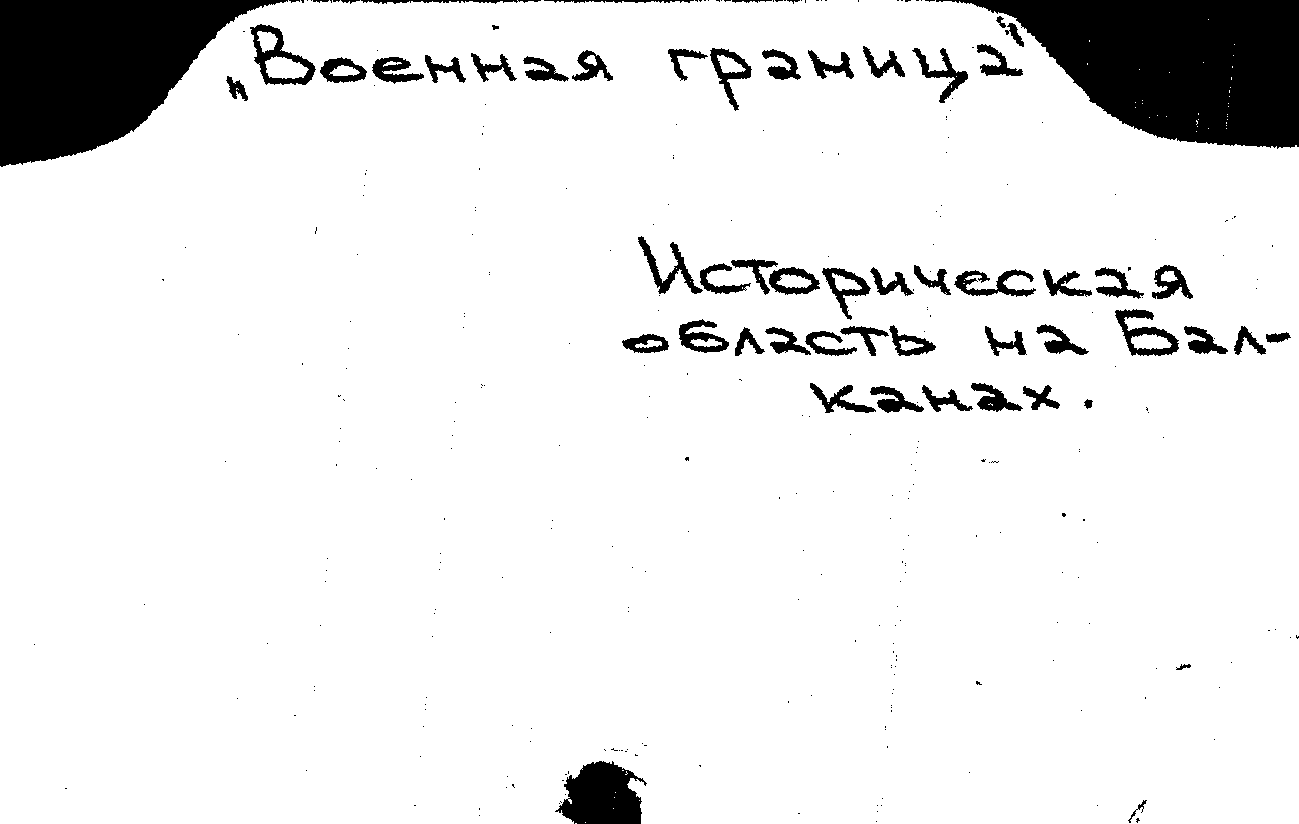 „Военная граница"
Историческая
область на Бал-
канах.